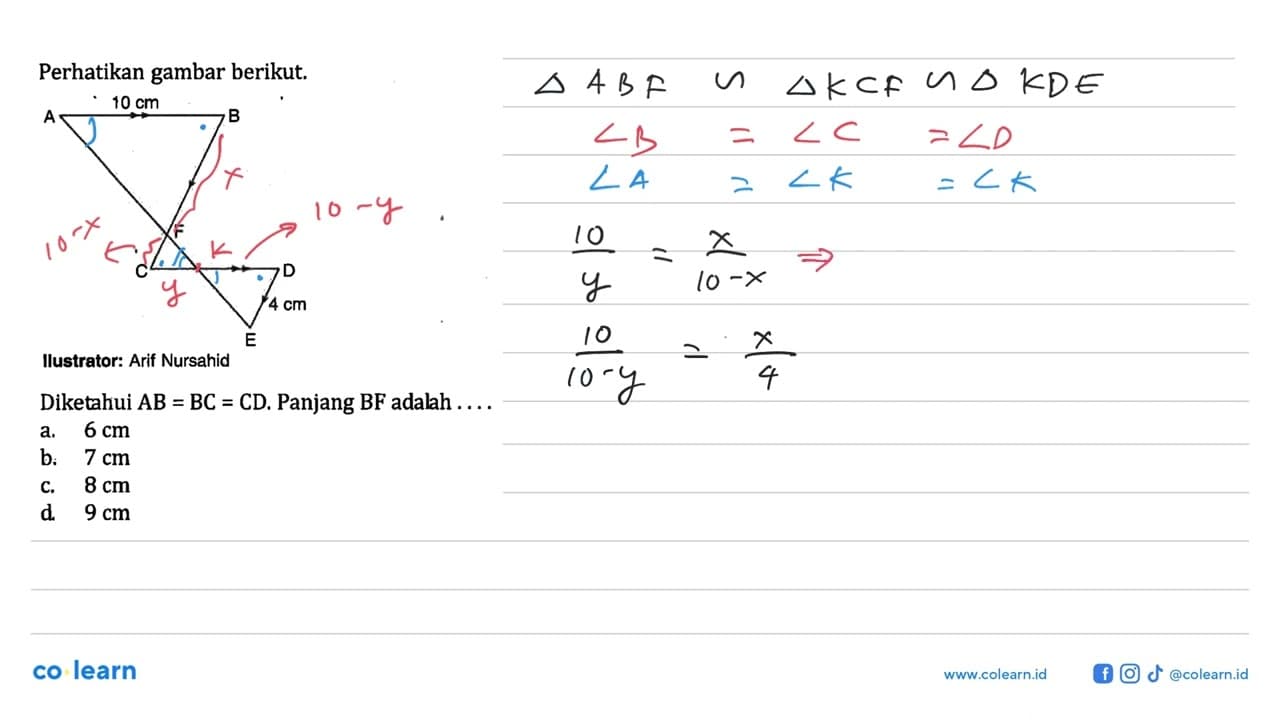 Perhatikan gambar berikut.
10 cm
A
B
x
10-x
F
K
10-y
C
D
y
4 cm
E
Ilustrator: Arif Nursahid
Diketahui AB = BC = CD. Panjang BF adalah ....
a. 6 cm
b. 7 cm
c. 8 cm
d. 9 cm
△ ABF ∽ △ KCF ∽ △ KDE
∠B = ∠C = ∠D
∠A = ∠K = ∠K
10/y = x/10-x ⇒
10/10-y = x/4
co learn
www.colearn.id
@colearn.id